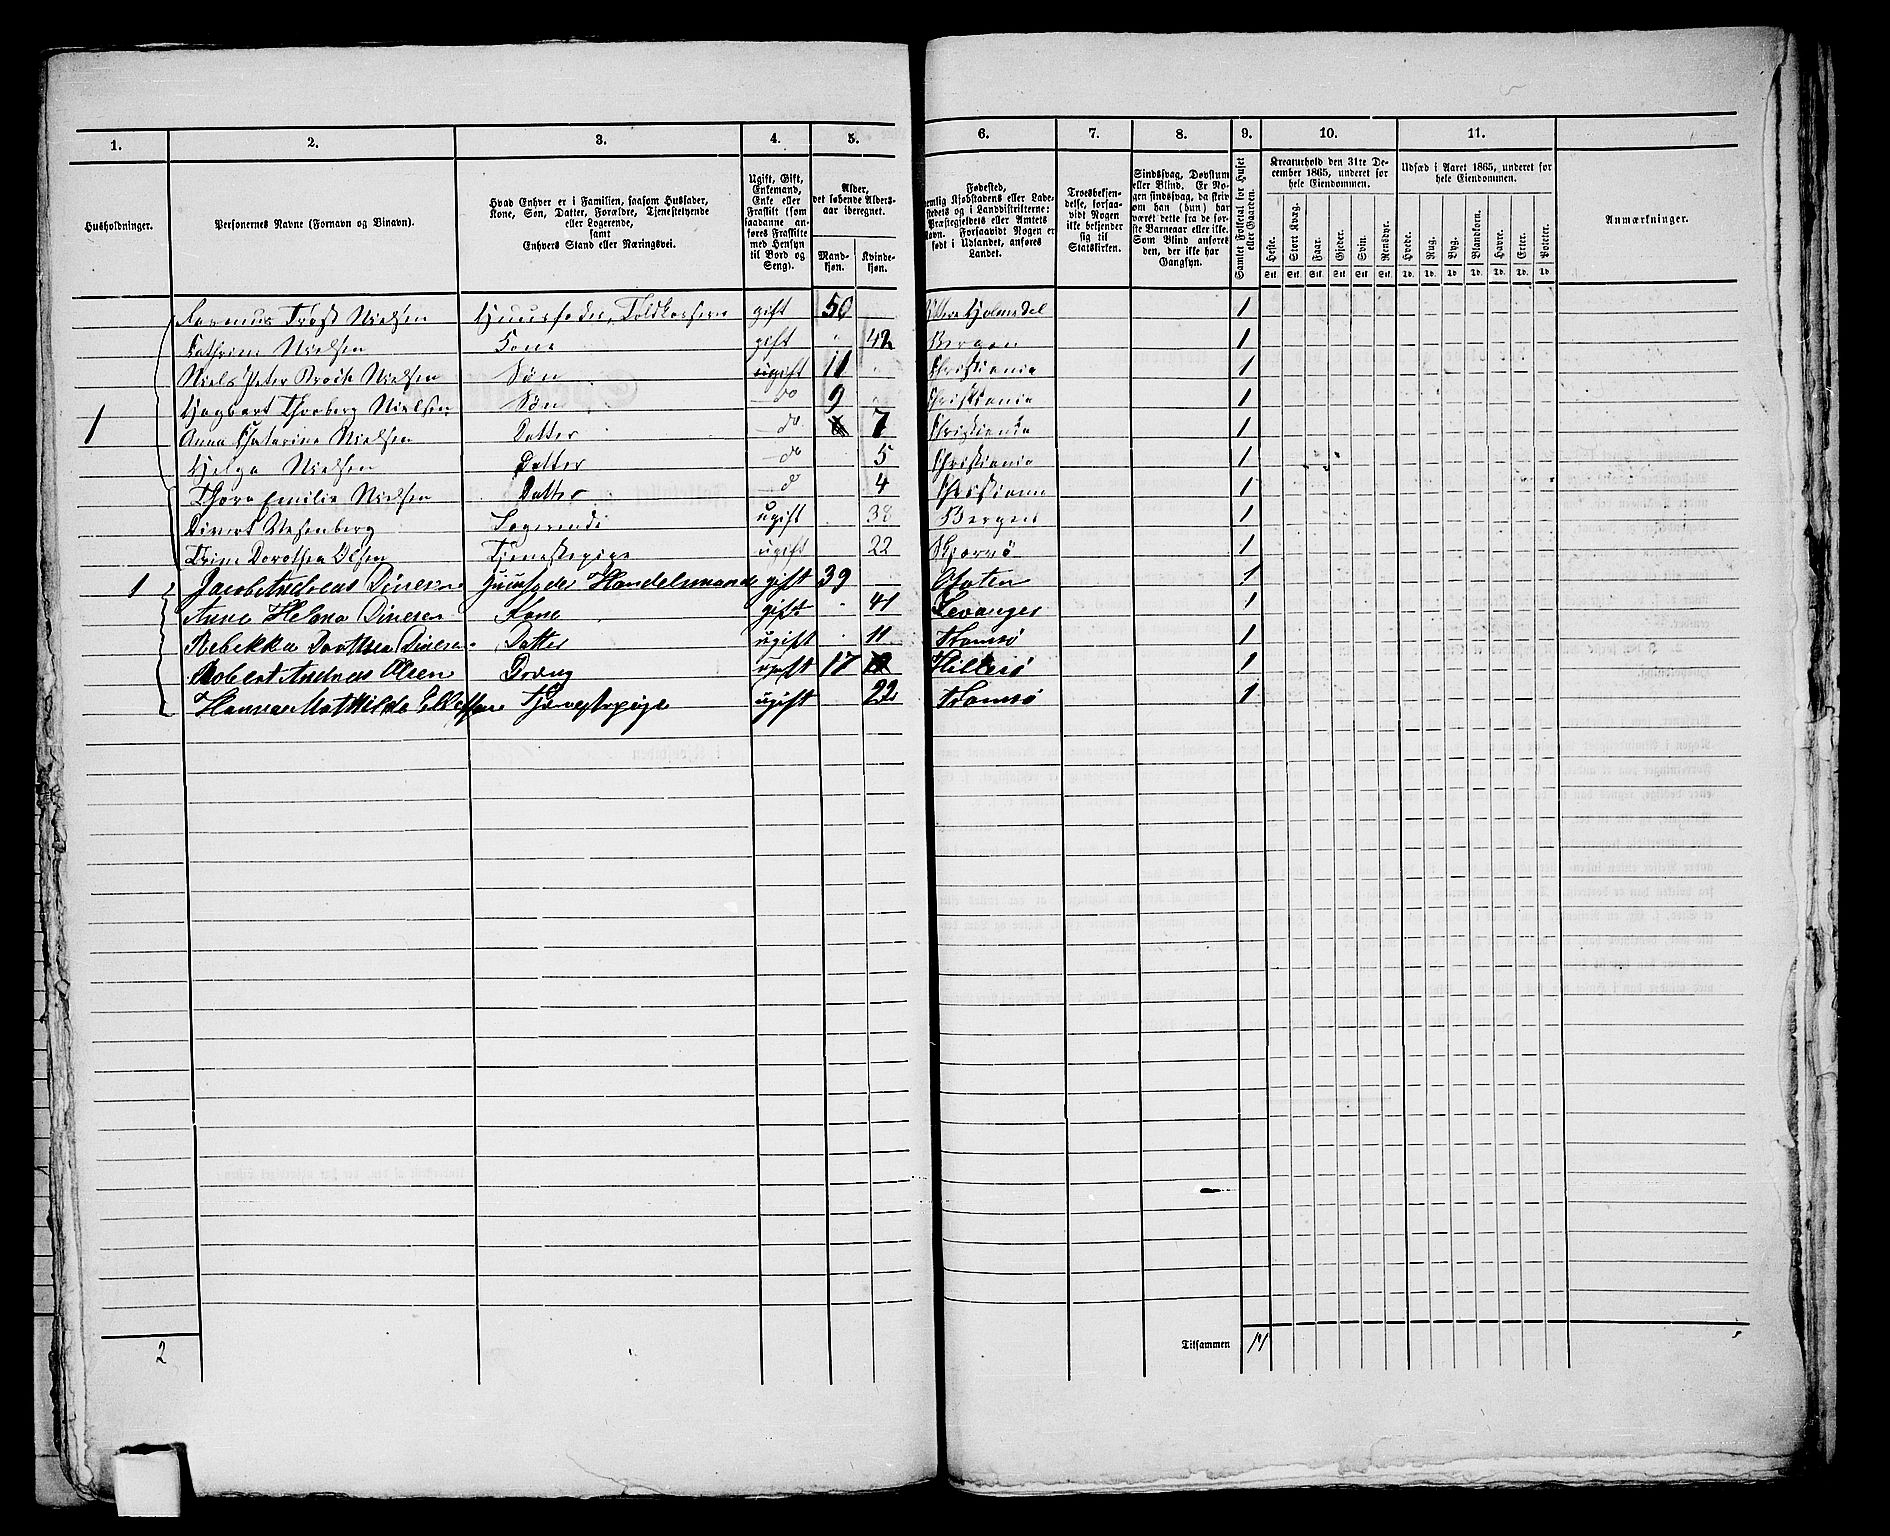 1. 2. 3. 4. 5. 6. 7. 8. 9. 10. 11.
Husholdninger.
Personernes Navne (Fornavn og Binavn).
Hvad Enhver er i Familien, saasom Husfader,
Kone, Søn, Datter, Forældre, Tjenestetyende
eller Logerende,
samt
Enhvers Stand eller Næringsvei.
Ugift, Gift,
Enkemand,
Enke eller
Fraskilt (som
saadanne an-
føres Fraskilte
med Hensyn
til Bord og
Seng).
Alder,
det løbende Alders-
aar iberegnet.
Mand-
kjøn.
Kvinde-
kjøn.
Fødested,
nemlig Kjøbstadens eller Lade-
stedets og i Landdistrikterne:
Præstegjeldets eller Amtets
Navn. Forsaavidt Nogen er
født i Udlandet, anføres
Landet.
Troesbekjen-
delse, forsaa-
vidt Nogen
ikke bekjender
sig til
Statskirken.
Sindssvag, Døvstum
eller Blind. Er No-
gen sindssvag, da skriv
om han (hun) har
været dette fra de før-
ste Barneaar eller ikke.
Som Blind anføres
den, der ikke har
Gangsyn.
Samlet Folketal for Huset
eller Gaarden.
Kreaturhold den 31te De-
cember 1865, underet for
hele Eiendommen.
Heste. Stort Kvæg. Faar. Gjeder. Svin. Rensdyr.
Stk. Stk. Stk. Stk. Stk. Stk.
Udsæd i Aaret 1865, underet for
hele Eiendommen.
Hvede. Rug. Byg. Blandkorn. Havre. Erter. Poteter.
Td. Td. Td. Td. Td. Td. Td.
Anmærkninger.
Rasmus Nielsen Huusfader, gift 50 1
Cathrine Nielsen Kone gift 42 Bergen 1
Niels Peter Nielsen Søn ugift 11 Christiania 1
Hagbart Nielsen Søn do 9 Christiania 1
1 Anna Catarine Nielsen Datter do 7 Christiania 1
Helga Nielsen Datter do 5 Christiania 1
Thora Emilie Nielsen Datter d 4 Christiania 1
Logerende ugift 38 Bergen 1
Trine Dorothea Olsen Tjenestepige ugift 22 Skjærvø 1
1 Jacob Andreas Dinesen Huusfader Handelsmand gift 39 1
Anne Helena Dinesen Kone gift 41 Levanger 1
Rebekka Dorthea Dinesen Datter ugift 11 Tromsø 1
Robert Andreas Olsen Dreng ugift 17 Hillesø 1
Hanna Mathilda Tjenestepige ugift 22 Tromsø 1
2
Tilsammen 14